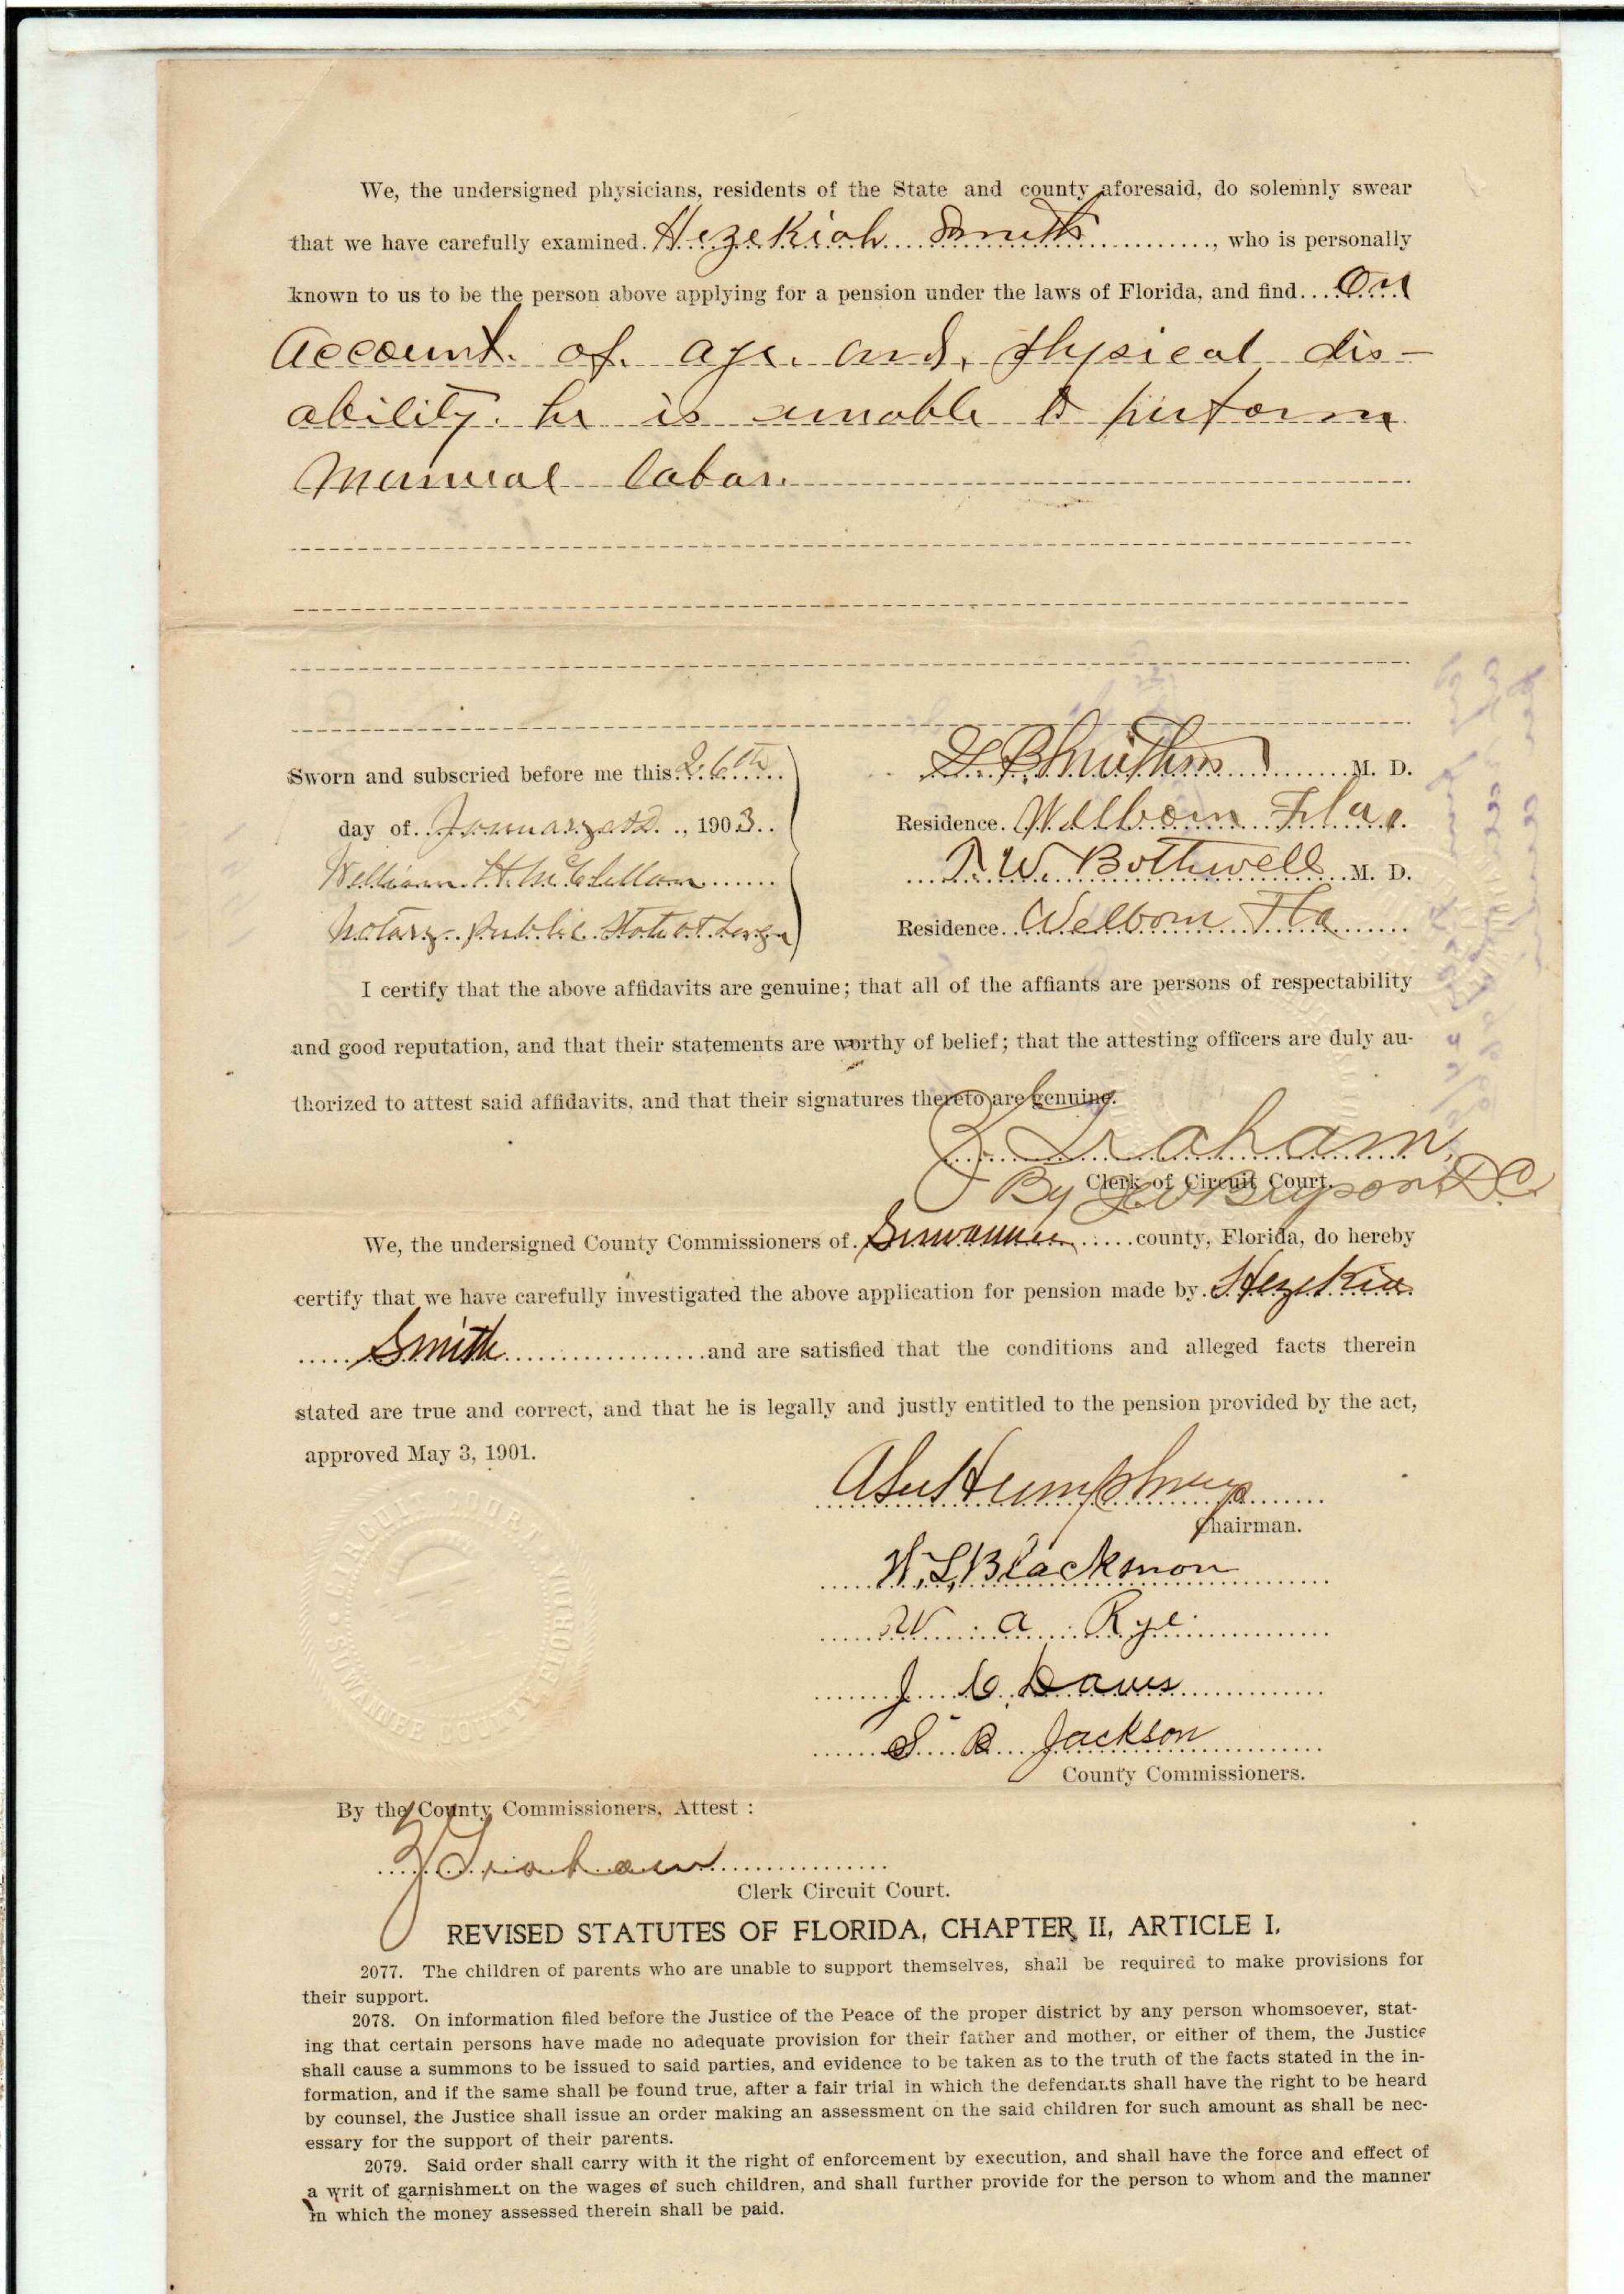 We, the undersigned physicians, residents of the State and county aforesaid, do solemnly swear
that we have carefully examined Hezekiah Smith, who is personally
known to us to be the person above applying for a pension under the laws of Florida, and find On
Account of age and physical dis-
ability he is unable to perform
Manual labor.
Sworn and subscried before me this 26th
day of January AD., 1903.
William H McClellan
Notary Public State at Large
Smith M. D.
Residence. Welborn Fla.
T. W. Bothwell M. D.
Residence. Welborn Fla
I certify that the above affidavits are genuine; that all of the affiants are persons of respectability
and good reputation, and that their statements are worthy of belief; that the attesting officers are duly au-
thorized to attest said affidavits, and that their signatures thereto are genuine.
Graham,
Clerk of Circuit Court.
By Bryson D.C.
We, the undersigned County Commissioners of Suwannee county, Florida, do hereby
certify that we have carefully investigated the above application for pension made by Hezekia
Smith and are satisfied that the conditions and alleged facts therein
stated are true and correct, and that he is legally and justly entitled to the pension provided by the act,
approved May 3, 1901.
Humphreys
Chairman.
W. L. Blackmon
W. A. Rye
J. C. Davis
S B Jackson
County Commissioners.
CIRCUIT COURT
SUWANNEE COUNTY, FLORIDA
By the County Commissioners, Attest :
Graham
Clerk Circuit Court.
REVISED STATUTES OF FLORIDA, CHAPTER II, ARTICLE I.
2077. The children of parents who are unable to support themselves, shall be required to make provisions for
their support.
2078. On information filed before the Justice of the Peace of the proper district by any person whomsoever, stat-
ing that certain persons have made no adequate provision for their father and mother, or either of them, the Justice
shall cause a summons to be issued to said parties, and evidence to be taken as to the truth of the facts stated in the in-
formation, and if the same shall be found true, after a fair trial in which the defendants shall have the right to be heard
by counsel, the Justice shall issue an order making an assessment on the said children for such amount as shall be nec-
essary for the support of their parents.
2079. Said order shall carry with it the right of enforcement by execution, and shall have the force and effect of
a writ of garnishment on the wages of such children, and shall further provide for the person to whom and the manner
in which the money assessed therein shall be paid.